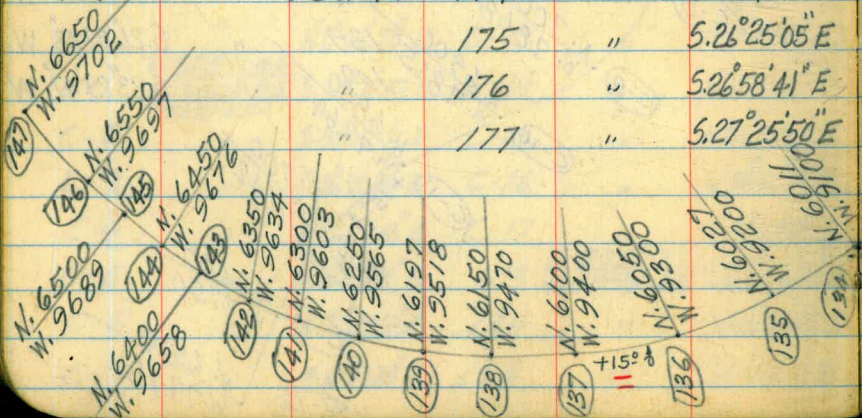 175 " S.26°25'05"E
176 " S.26°58'41"E
" 177 " S.27°25'50"E
N. 6650
W. 9702
147
N. 6550
W. 9697
146
145
N. 6500
W. 9689
N. 6450
W. 9676
144
143
N. 6400
W. 9658
N. 6350
W. 9634
142
N. 6300
W. 9603
141
N. 6250
W. 9565
140
N. 6197
W. 9518
139
N. 6150
W. 9470
138
N. 6100
W. 9400
137
+15
N. 6050
W. 9300
136
N. 6027
W. 9200
135
N. 6011
W. 9100
134